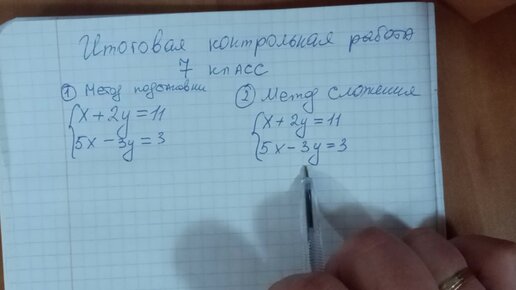 Итоговая контрольная работа
7 класс
① Метод подстановки
x + 2y = 11
5x − 3y = 3
② Метод сложения
x + 2y = 11
5x − 3y = 3